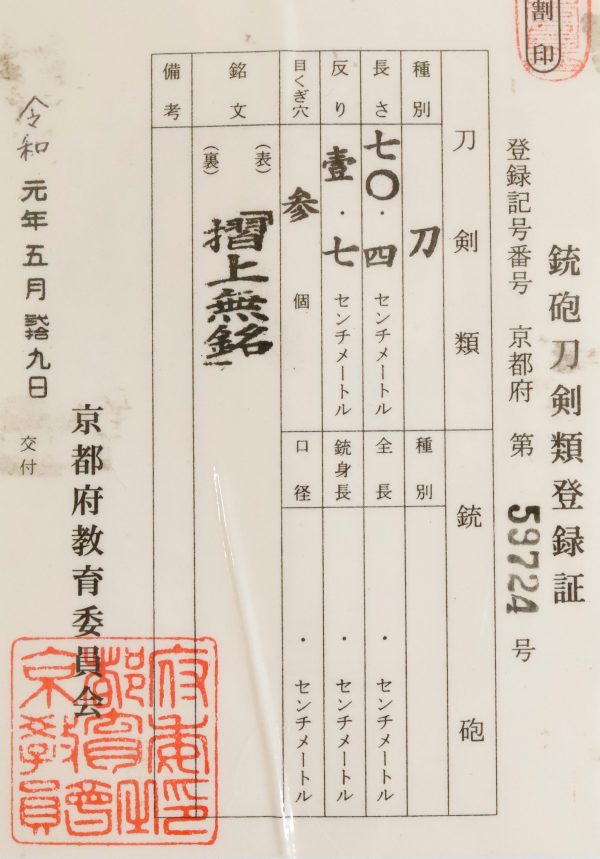 割印
銃砲刀剣類登録証
登録記号番号 京都府 第 59724 号
刀剣類
銃砲
種別 刀
長さ 七〇・四 センチメートル
反り 壹・七 センチメートル
目くぎ穴 参 個
種別
全長 ・ センチメートル
銃身長 ・ センチメートル
口径 ・ センチメートル
銘文
(表)「摺上無銘」
(裏)
備考
令和元年五月弐拾九日 交付
京都府教育委員会